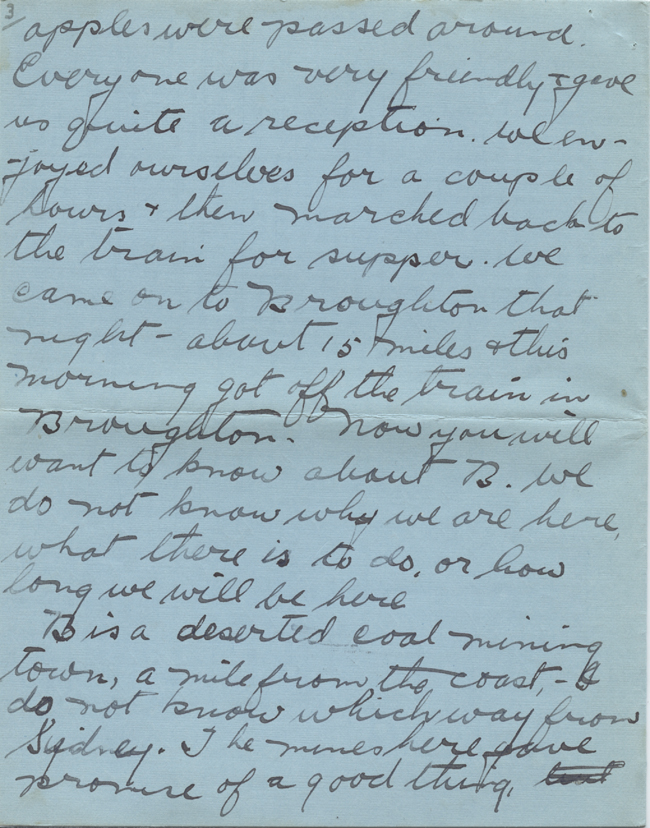 3
apples were passed around.
Everyone was very friendly & gave
us quite a reception. We en-
-joyed ourselves for a couple of
hours & then marched back to
the train for supper. We
came on to Broughton that
night - about 15 miles & this
morning got off the train in
Broughton. Now you will
want to know about B. We
do not know why we are here,
what there is to do, or how
long we will be here
B is a deserted coal mining
town, a mile from the coast, - I
do not know which way from
Sydney. The mines here gave
promise of a good thing,